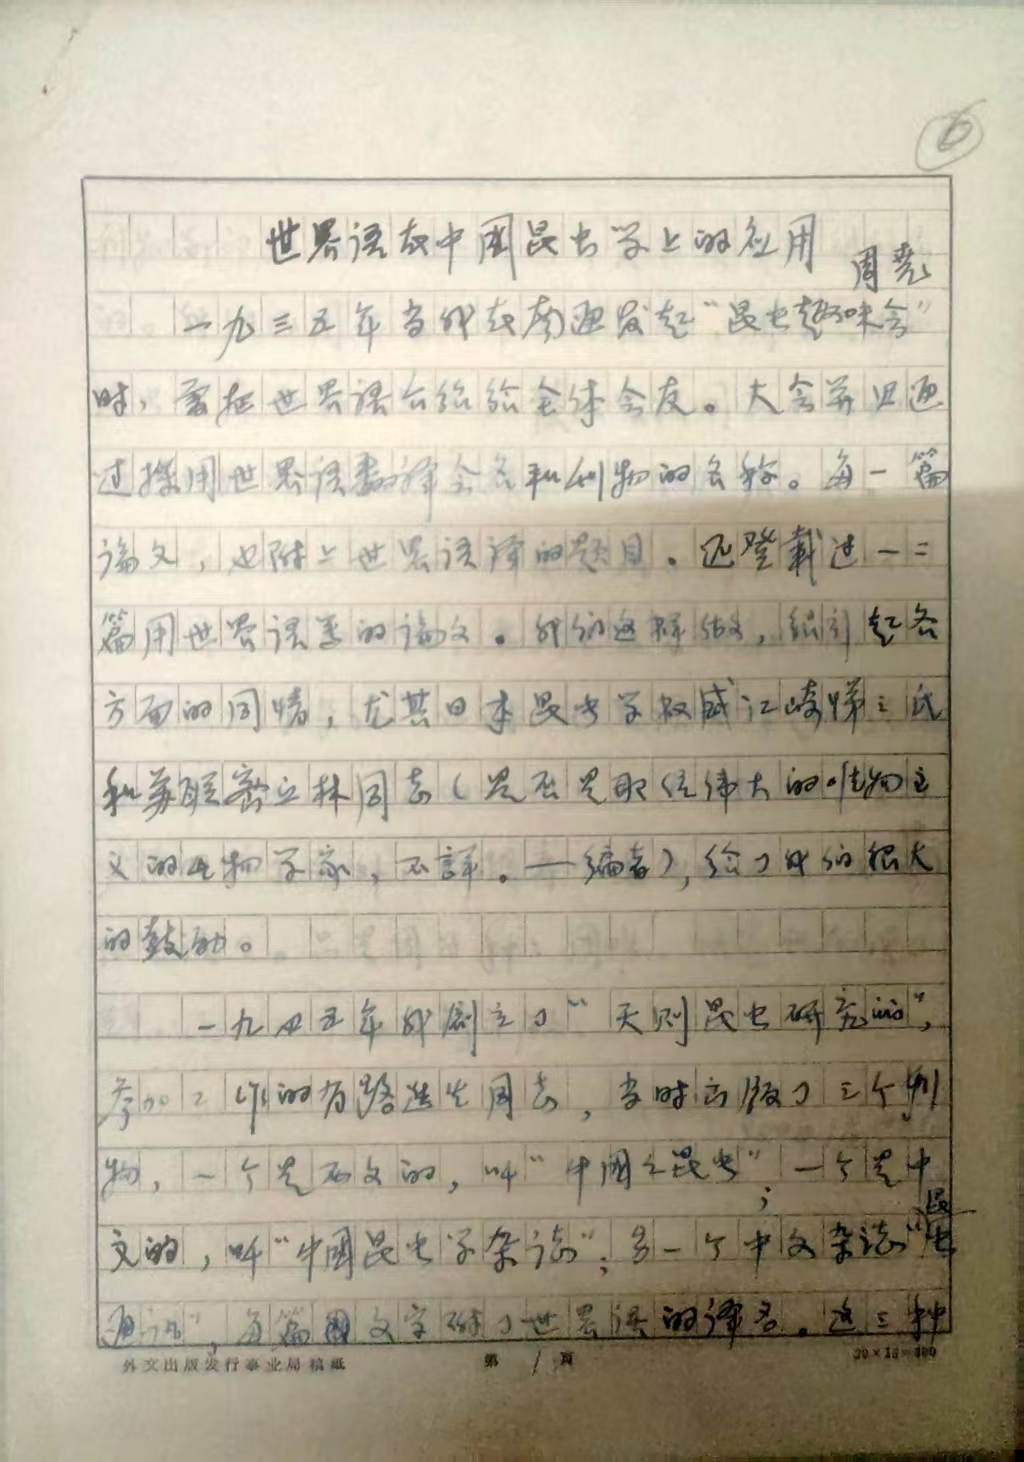 ⑥
世界语在中国昆虫学上的应用
周尧
一九三五年当我在南通发起“昆虫趣味会”
时，曾把世界语介绍给全体会友。大会并且通
过采用世界语翻译会名和刊物的名称。每一篇
论文，也附上世界语译的题目。还登载过一二
篇用世界语写的论文。我们这样做，很引起各
方面的同情，尤其日本昆虫学权威江崎悌三氏
和苏联密立林同志（是否是那位伟大的唯物主
义的生物学家，不详。——编者），给了我们很大
的鼓励。
一九四五年我创立了“天则昆虫研究所”，
参加工作的有路进生同志，当时出版了三个刊
物，一个是西文的，叫“中国之昆虫”；一个是中
文的，叫“中国昆虫学杂志”；另一个中文杂志“昆虫
通讯”，每篇图文字附了世界语的译名。这三种
外文出版发行事业局稿纸 第1页 20×15=300